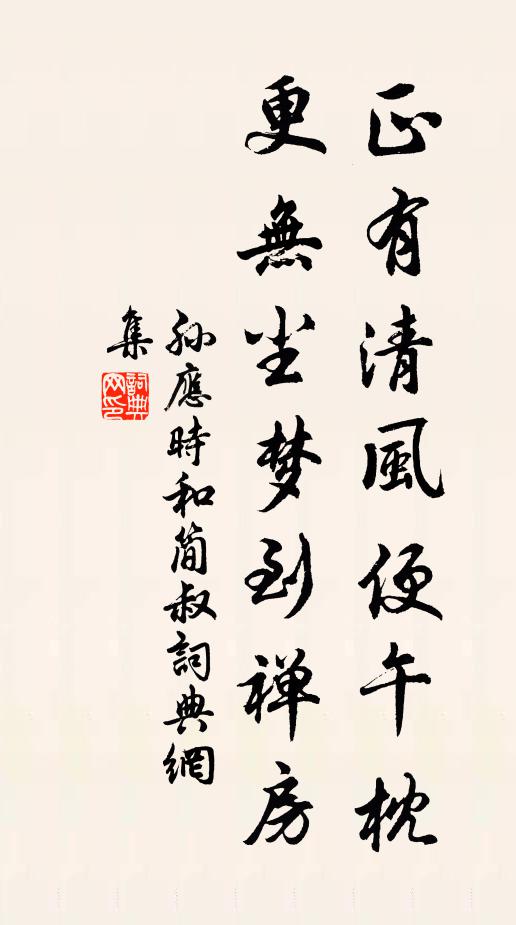 正有清風便午枕
更無尘梦到禅房
孙應時和简叔詞典網
集
詞典网印